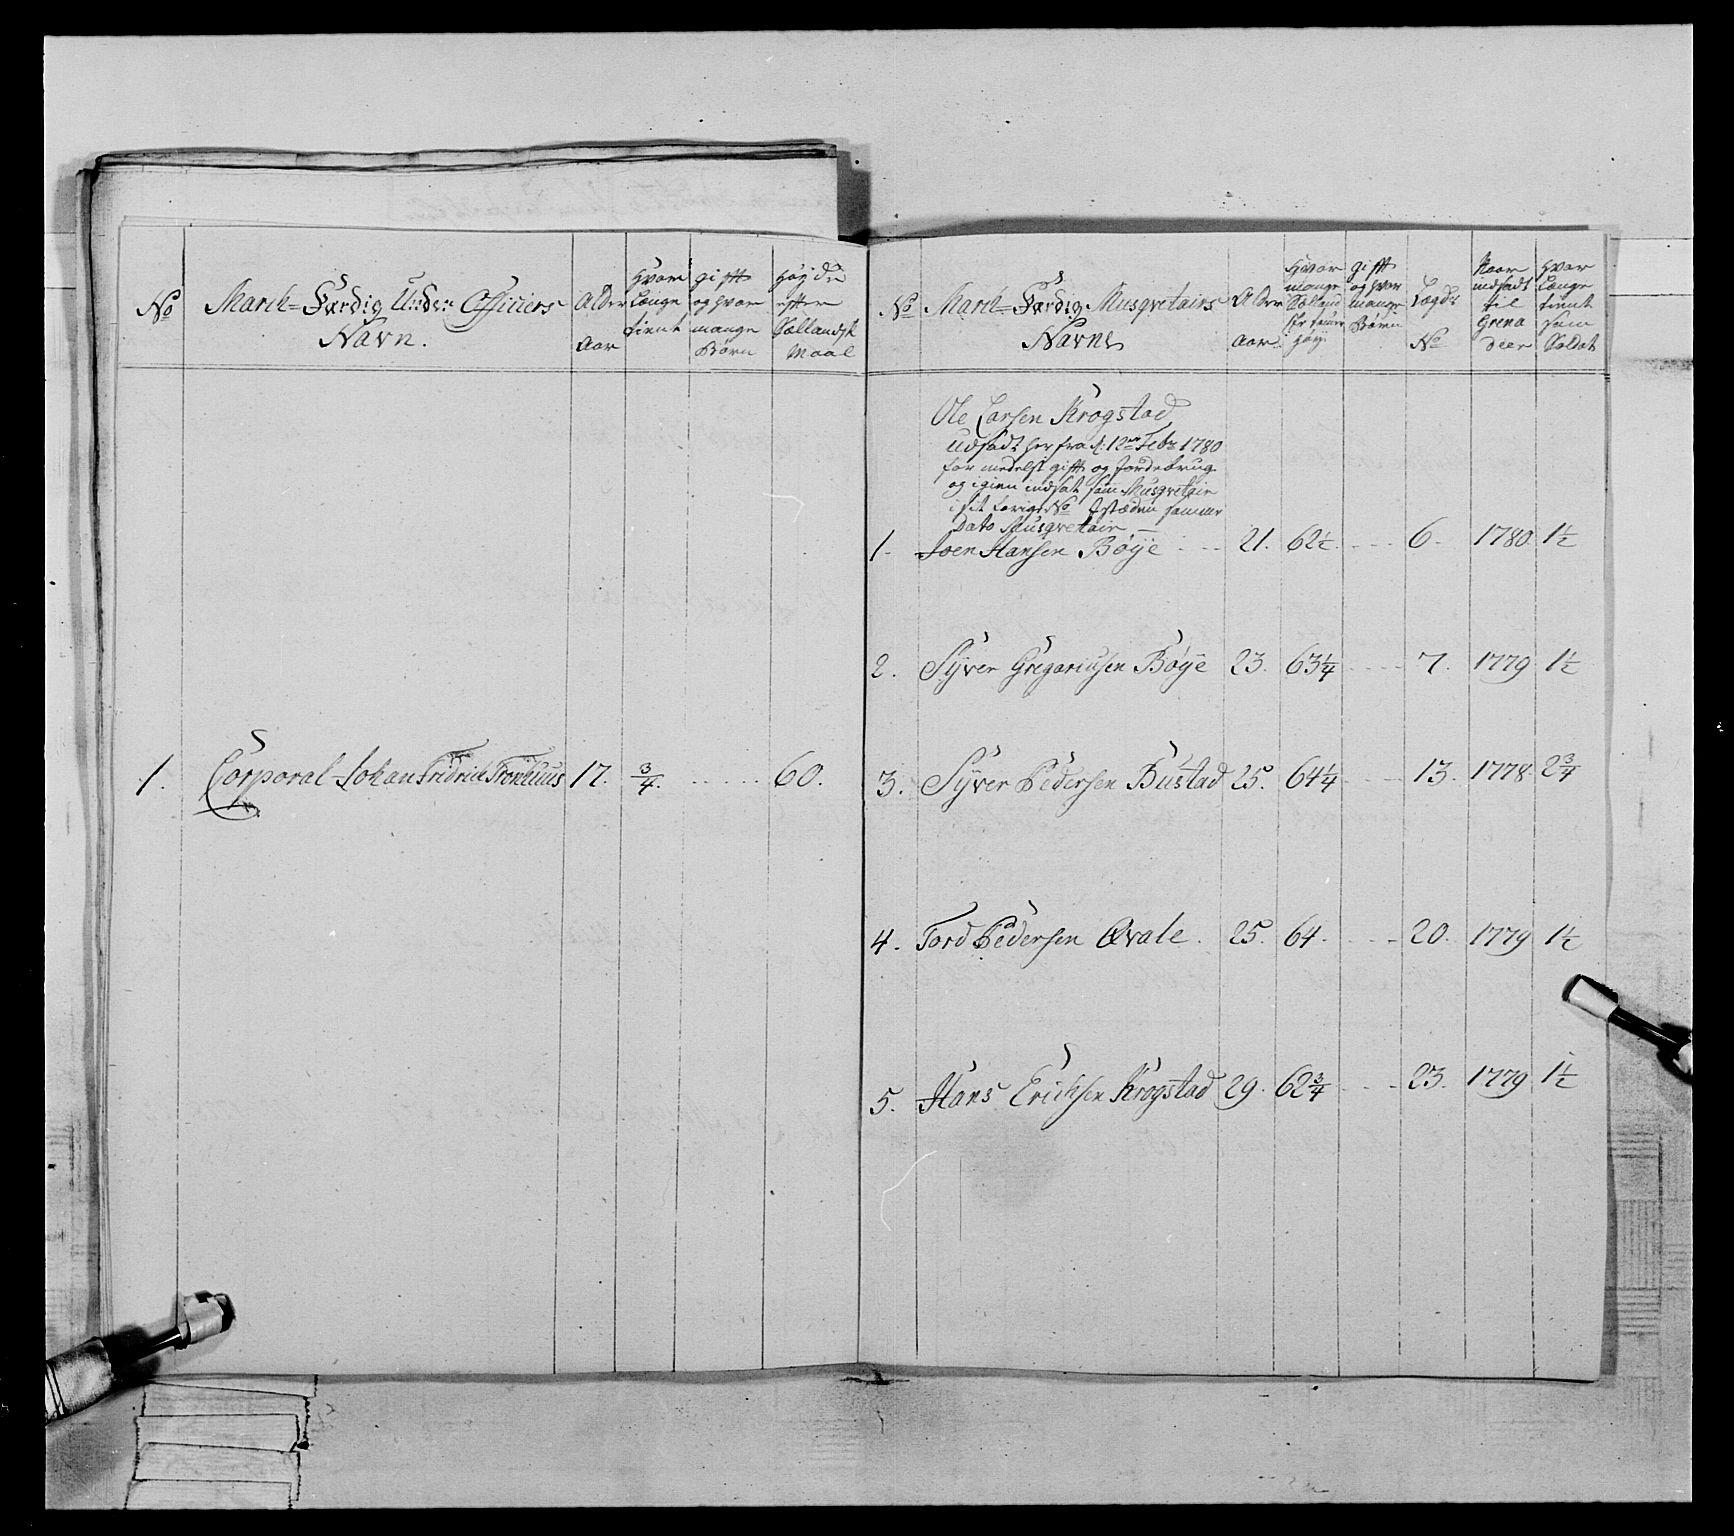 No
March-Færdig Under Officiers
Navn.
Alder
Aar
Hvor
Længe
tient
gift
og hvor
mange
Børn
Høyde
efter
Sællandsk
Maal
1. Corporal Johan Fridrich Tronhuus 17. 3/4. 60.
No
March-Færdig Musqvetairs
Navne
Alder
Aar
Hvor
mange
gift
og hvor
mange
Børn
Lægds
No
Naar
indsadt
til
Grena
deer
Hvor
Længe
tient
som
Soldat
Ole Larsen Krogstad
udsadt her fra d: 12te Febr 1780
formedelst gift og Jordebrug
og igien indsat som Musqvetair
i sit forige No Istæden samme
Dato Musqvetair
1. Joen Hansen Bøÿe 21. 62 1/2. 6. 1780. 1 1/2
2. Sÿver Gregariusen Bøÿe 23. 63 1/4 7. 1779 1 1/2
3. Sÿver Pedersen Bustad 25. 64 1/4 13. 1778. 2 3/4
4. Tord Pedersen Qvale. 25. 64. 20. 1779 1 1/2
5. Hans Erichsen Krogstad 29. 62 3/4 23. 1779 1 1/2